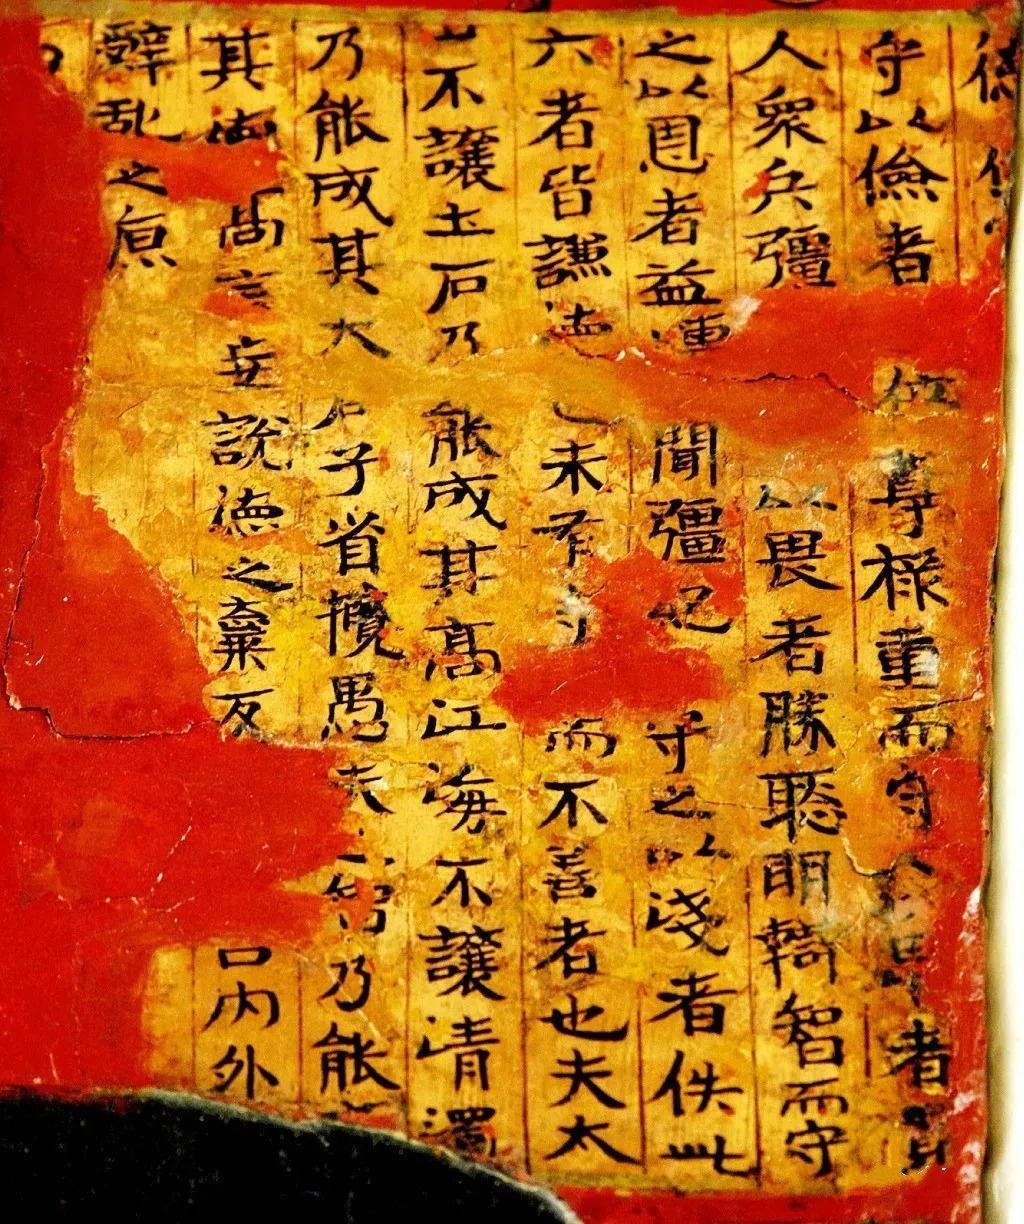 守以儉者位尊祿重而守卑者
人衆兵彊以畏者勝聡明智而守
之以者益聞彊記守之以浅者佚此
六者皆謙德未有而不善者也夫太
山不讓土石乃能成其高江海不讓清濁
乃能成其大君子省攬愚夫乃能
其高言妄說德之棄口內外
辭乱之原